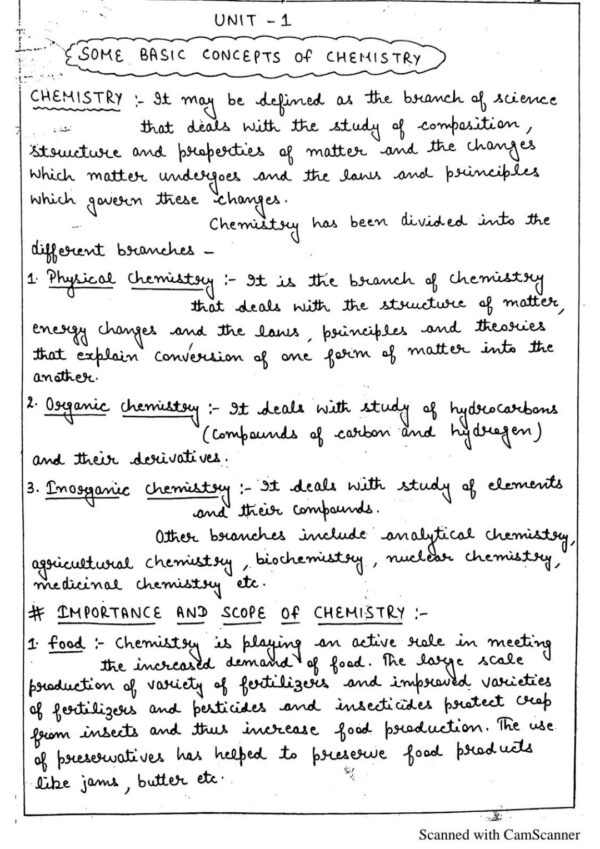 UNIT - 1
SOME BASIC CONCEPTS OF CHEMISTRY
CHEMISTRY :- It may be defined as the branch of science
that deals with the study of composition,
structure and properties of matter and the changes
which matter undergoes and the laws and principles
which govern these changes.
Chemistry has been divided into the
different branches -
1. Physical Chemistry :- It is the branch of chemistry
that deals with the structure of matter,
energy changes and the laws, principles and theories
that explain conversion of one form of matter into the
another.
2. Organic chemistry :- It deals with study of hydrocarbons
(compounds of carbon and hydrogen)
and their derivatives.
3. Inorganic chemistry :- It deals with study of elements
and their compounds.
Other branches include analytical chemistry,
agricultural chemistry, biochemistry, nuclear chemistry,
medicinal chemistry etc.
# IMPORTANCE AND SCOPE OF CHEMISTRY :-
1. food :- Chemistry is playing an active role in meeting
the increased demand of food. The large scale
production of variety of fertilizers and improved varieties
of fertilizers and pesticides and insecticides protect crop
from insects and thus increase food production. The use
of preservatives has helped to preserve food products
like jams, butter etc.
Scanned with CamScanner